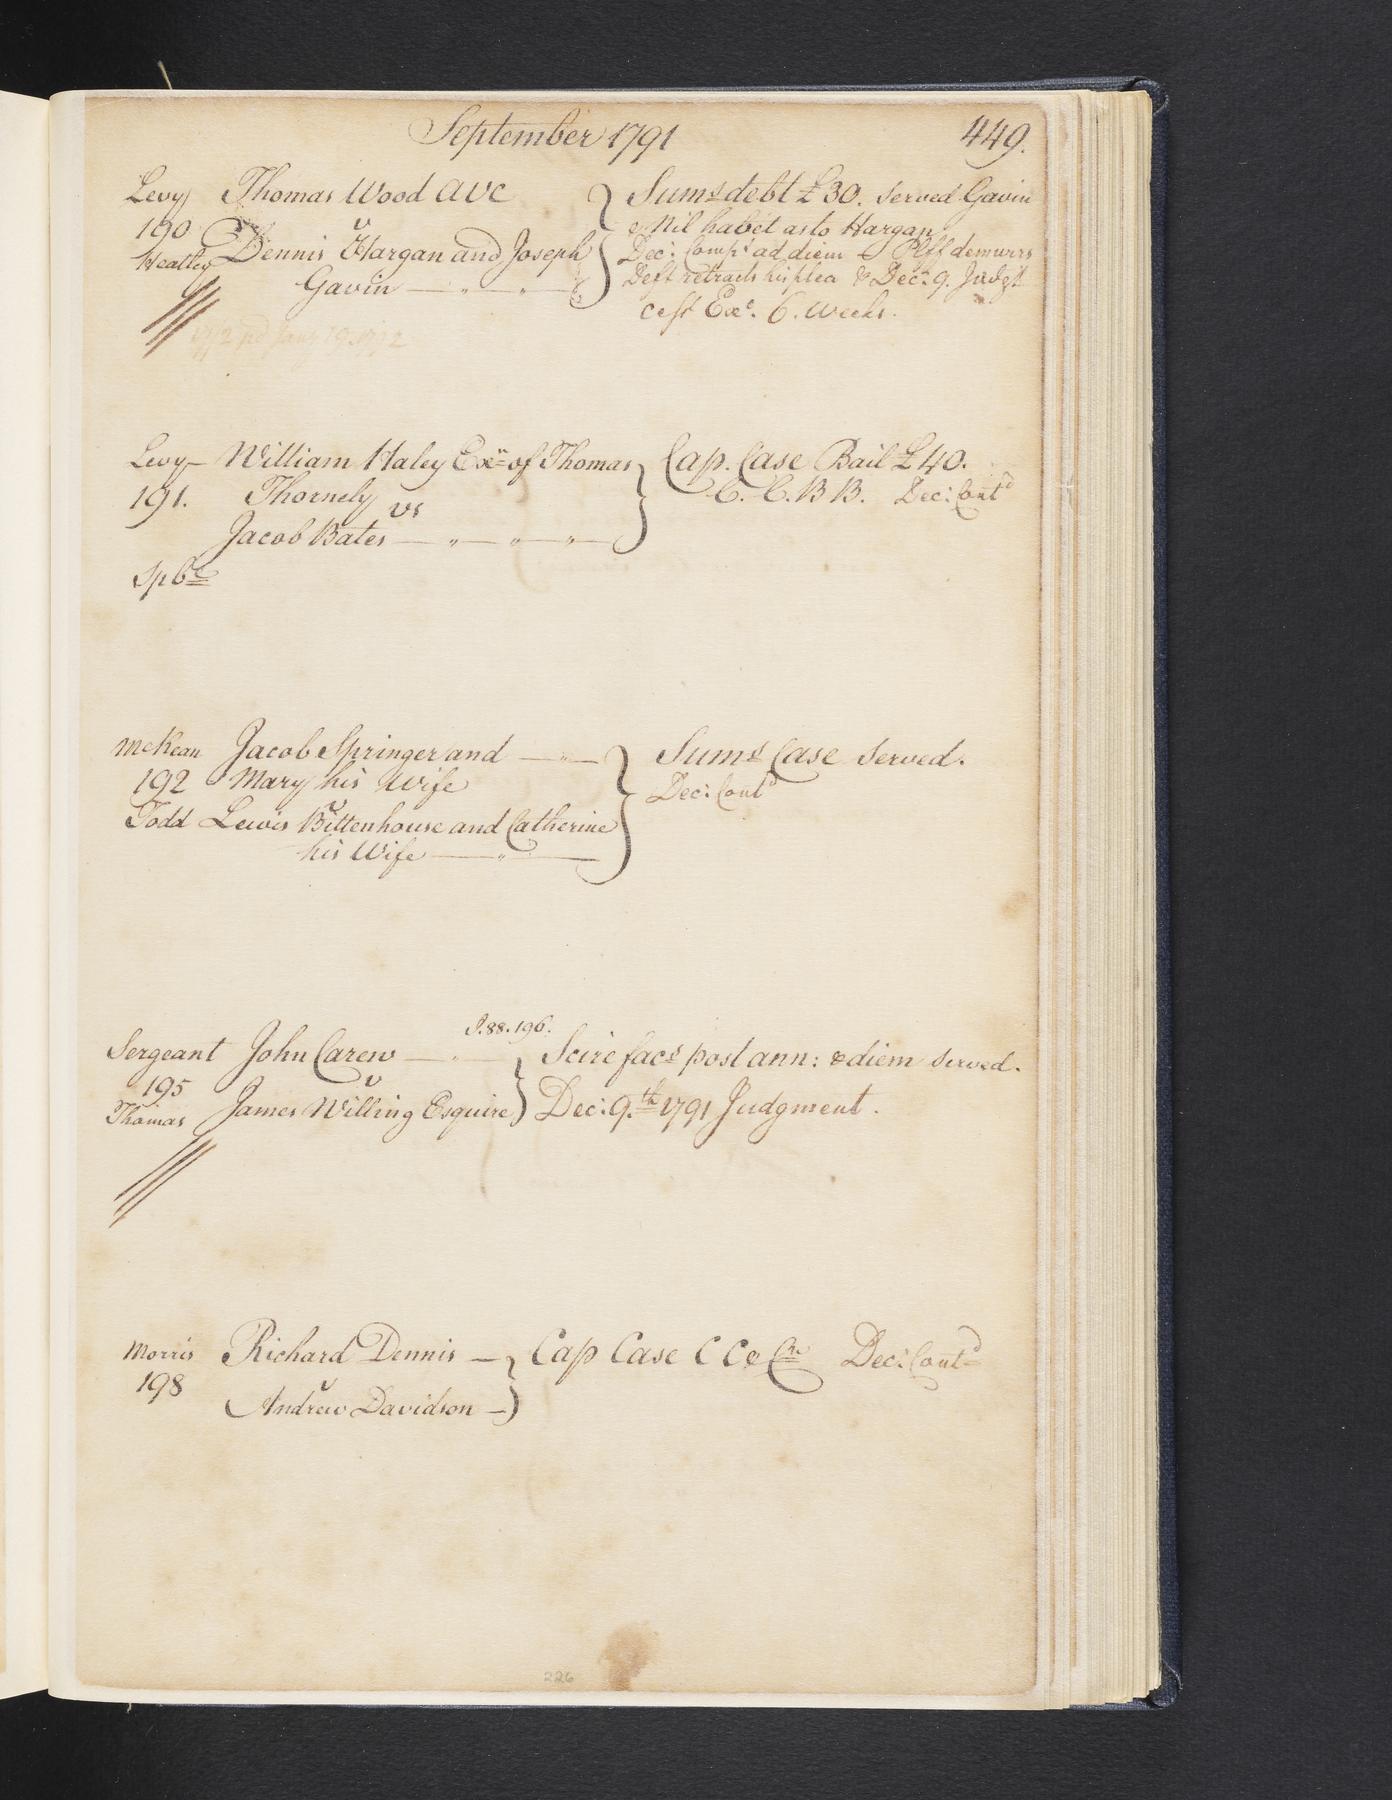 September 1791
449.
Levy Thomas Wood a v c
190 v
Heatley Dennis Hargan and Joseph
Gavin
Sums debt £30. Served Gavin
& Nil habet as to Hargan
Dec: Comps ad diem & Plff demurrs
Deft retracts his plea & Dec: 9. Judgt
cest Exe. 6. weeks.
Jany 19. 1792
Levy William Haley Exr of Thomas
191. Thornely vs
Jacob Bates
Spbe
Cap. Case Bail £40.
C. C. B B. Dec: Contd
McKean Jacob Springer and
192 Mary his Wife
v
Todd Lewis Bittenhouse and Catherine
his Wife
Sums Case Served.
Dec: Contd
S. 88. 196.
Sergeant John Carew
195 v
Thomas James Willing Esquire
Scire facs post ann: & diem served.
Dec: 9.th 1791 Judgment.
Morris Richard Dennis
198 v
Andrew Davidson
Cap Case C C & Ca Dec: Contd
226